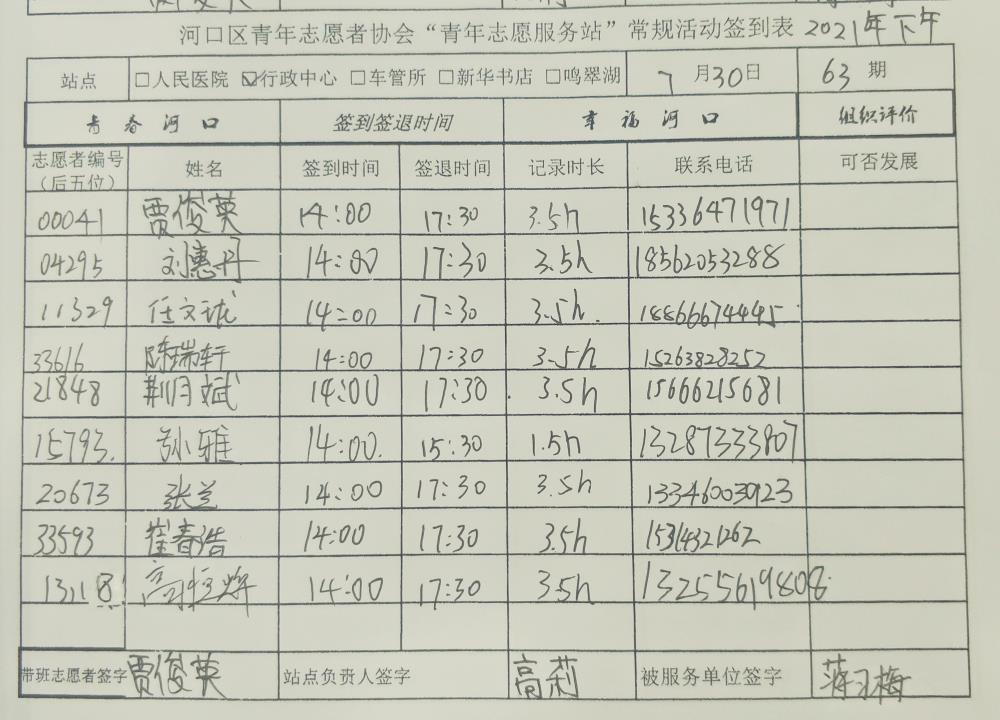 河口区青年志愿者协会“青年志愿服务站”常规活动签到表 2021年下午
站点 □人民医院 ☑行政中心 □车管所 □新华书店 □鸣翠湖 7月30日 63期
青春河口 签到签退时间 幸福河口 组织评价
志愿者编号（后五位） 姓名 签到时间 签退时间 记录时长 联系电话 可否发展
00041 贾俊英 14:00 17:30 3.5h 15336471971
04295 刘惠丹 14:00 17:30 3.5h 18562053288
11329 任文珑 14:00 17:30 3.5h. 18866674445
33616 陈瑞轩 14:00 17:30 3.5h 15263828252
21848 荆月斌 14:00 17:30 3.5h 15666215681
15793. 孙雅 14:00. 15:30 1.5h 13287333807
20673 张兰 14:00 17:30 3.5h 13346003923
33593 崔春浩 14:00 17:30 3.5h 15314321262
13118 高 14:00 17:30 3.5h 13255619808
带班志愿者签字 贾俊英 站点负责人签字 高莉 被服务单位签字 蒋习梅